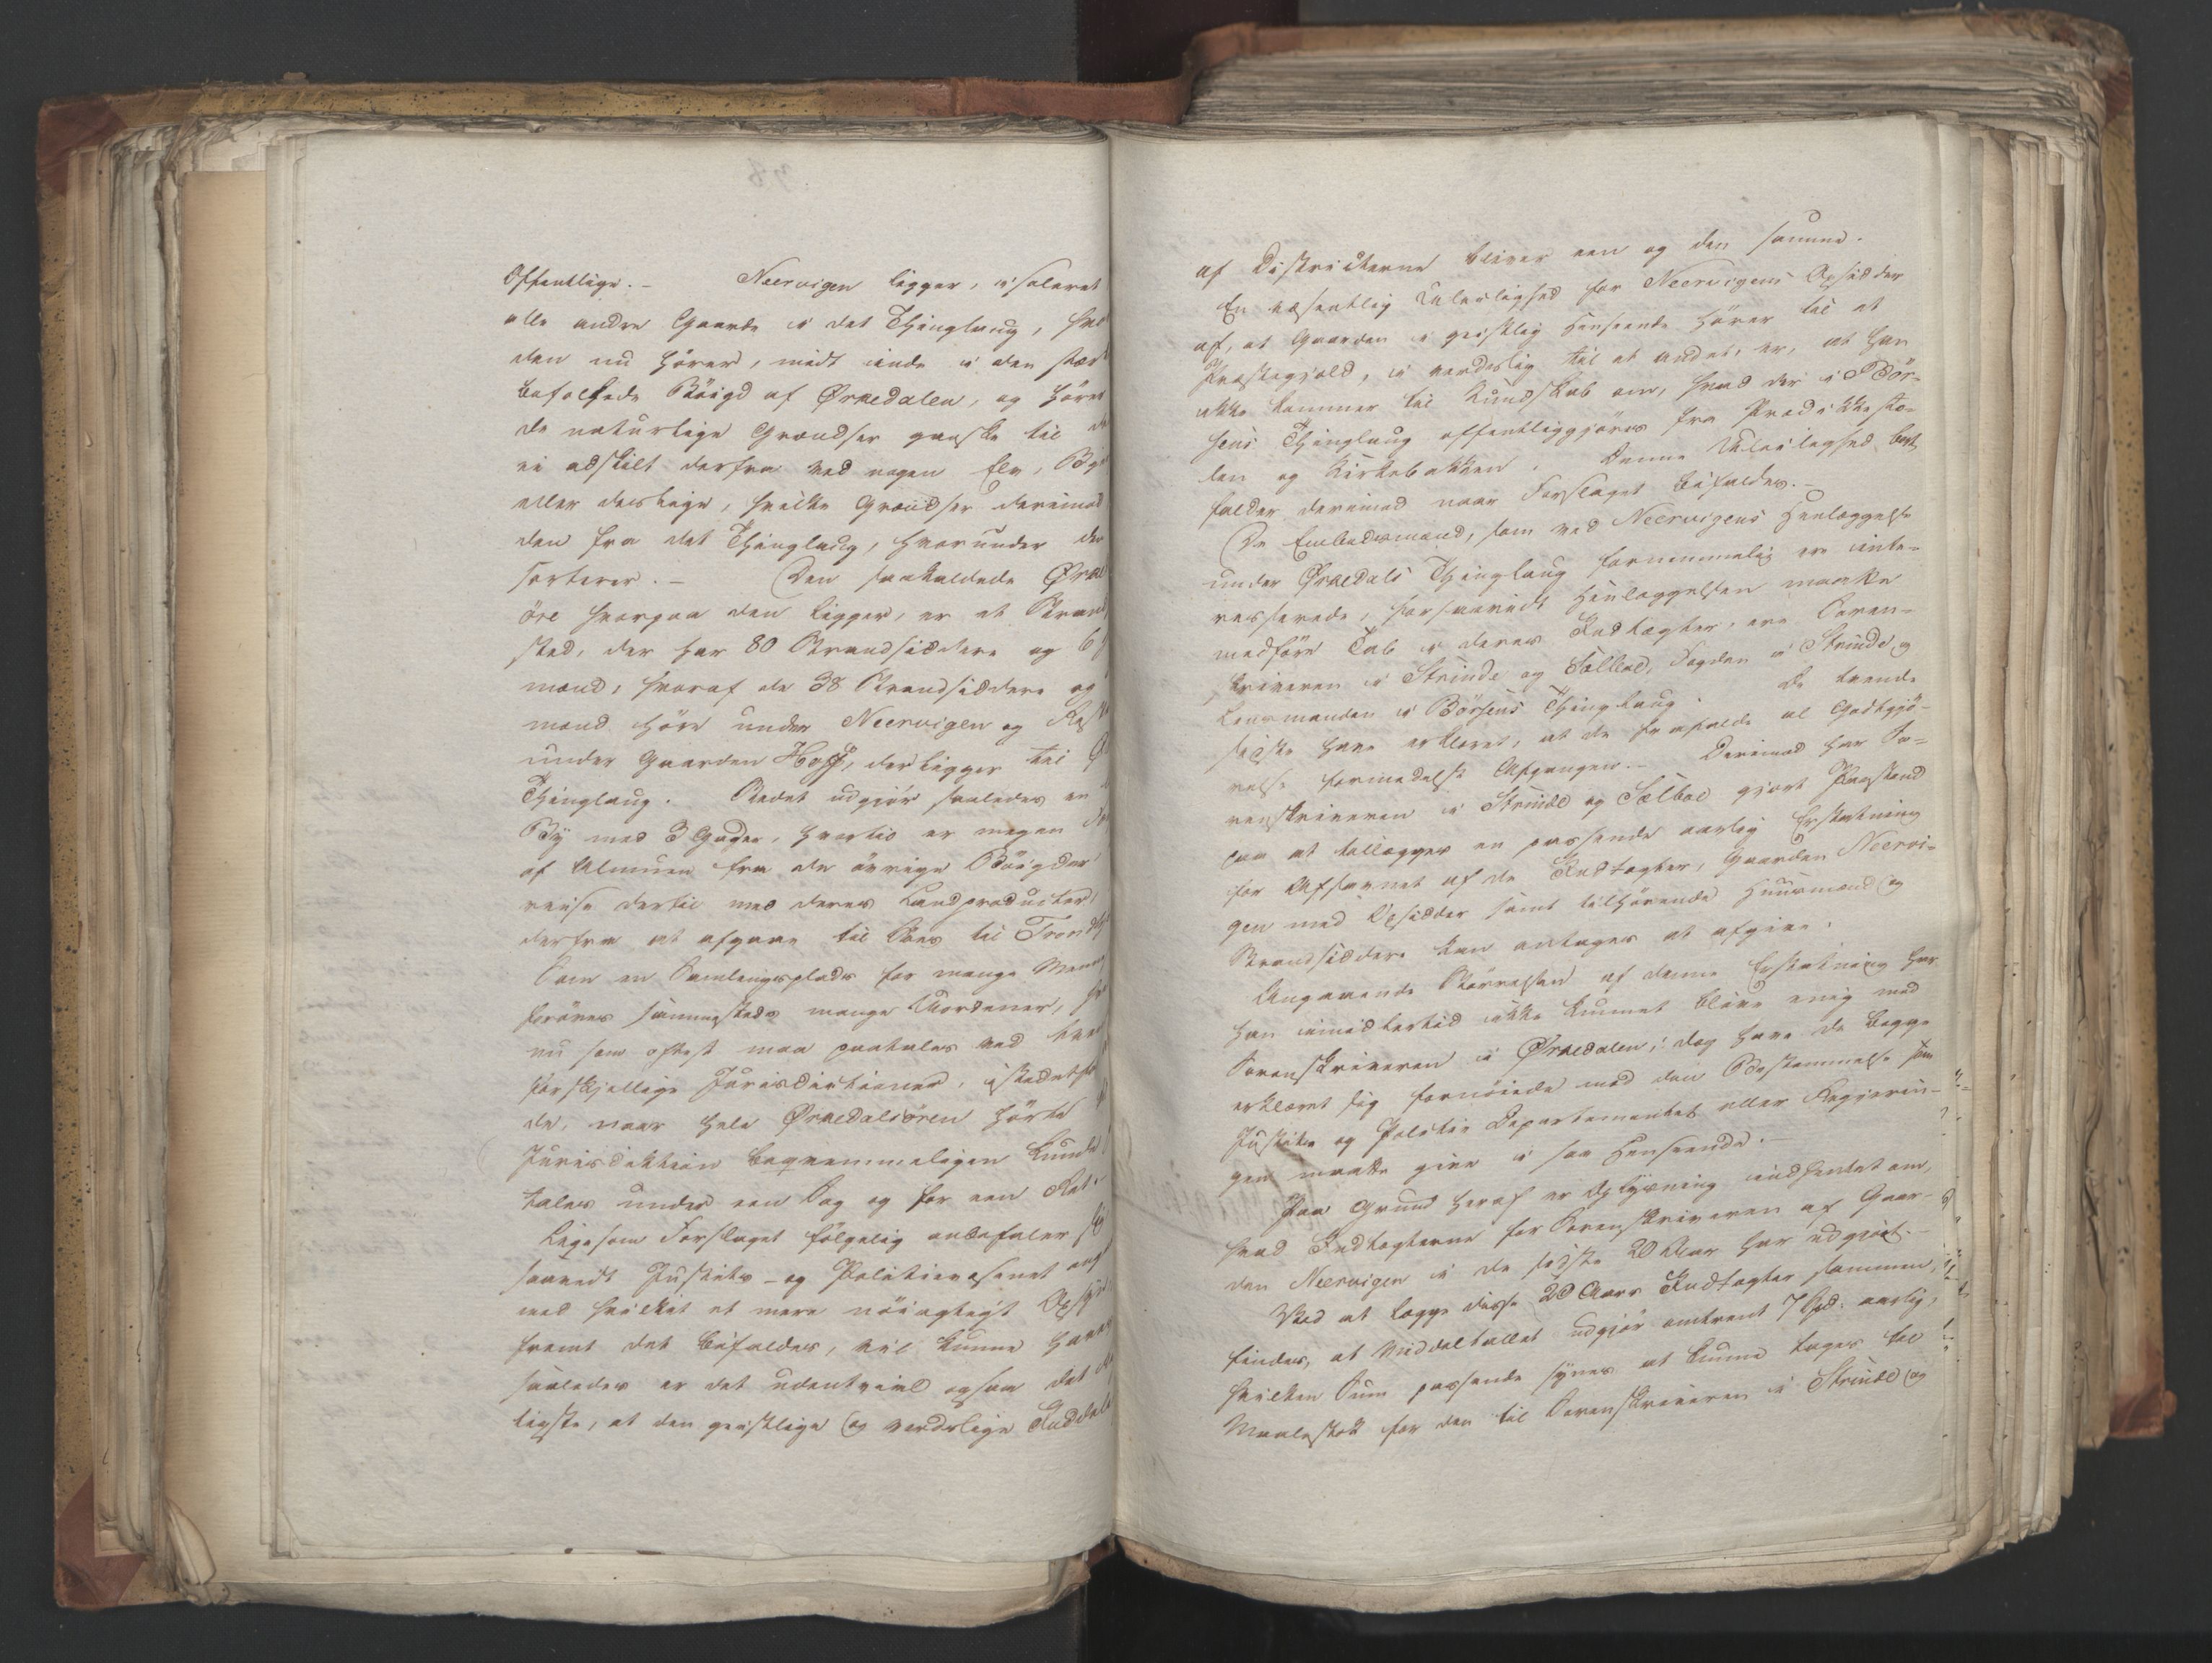 Offentlige. - Neervigen ligger, isoleret
alle andre Gaarde i det Thinglaug, hvo
den nu hører, midt inde i den stær
befolkede Böigd af Ørkedalen, og hører
de naturlige Grændser ganske til
ei adskilt derfra ved nogen Elv,
eller deslige, hvilke Grændser derimod
den fra det Thinglaug, hvorunder den
sorterer. - Den saakaldede Ørke
öre hvorpaa den ligger, er et Strand
sted, der har 80 Strandsiddere og 6
mænd, hvoraf de 38 Strandsiddere og
mænd höre under Neervigen og Res
under Gaarden Hoff, der ligger til
Thinglaug. Stedet udgiör saaledes en
By med 3 Gader, hvortil er megen
af Almuen fra de övrige Böigder
reise dertil med deres Landproducter,
derfra at afgaae til Söes til Trondh
Som en Samlingsplads for mange Menn
foröves sammesteds mange Uordener,
nu som oftest maa paatales ved tven
forskjellige Jurisdictioner, istedetfor
de, naar hele Ørkedalsören hörte
Jurisdiktion beqvemmeligen kunde
tales under een Sag og for een Ret. -
Ligesom Forslaget fölgelig anbefaler sig
saavidt Justits- og Politievæsenet ang
med hvilket et mere nöiagtigt Opsyn
fremt det bifaldes, vil kunne haves
saaledes er det udentvivl ogsaa det
ligste, at den geistlige og verdslige Inddel
af Districterne bliver een og den samme.
En væsentlig Uleilighed for Neervigens Opsidder
af, at Gaarden i geistlig Henseende hörer til et
Præstegjeld, i verdslig til et andet, er, at han
ikke kommer til Kundskab om, hvad der i Bör-
sens Thinglaug offentliggjöres fra Prædikesto-
len og Kirkebakken. Denne Uleilighed bort
falder derimod naar Forslaget bifaldes. -
De Embedsmænd, som ved Neervigens Henlæggelse
under Ørkedals Thinglaug fornemmelig ere inte-
resserede, forsaavidt Henlæggelsen maatte
medföre Tab i deres Indtægter, ere Soren-
skriveren i Strinde og Sælboe, Fogden i Strinde og
Lensmanden i Börsens Thinglaug. De tvende
sidste have erklæret, at de frafalde al Godtgjö-
relse formedelst Afgangen. - Derimod har So-
renskriveren i Strinde og Sælboe gjort Paastand
paa at tillægges en passende aarlig Erstatning
for Afsavnet af de Indtægter, Gaarden Neervi-
gen med Opsidder samt tilhörende Huusmænd og
Strandsiddere kan antages at afgive.
Angaaende Störrelsen af denne Erstatning har
han imidlertid ikke kunnet blive enig med
Sorenskriveren i Ørkedalen; dog have de begge
erklæret sig fornöiede med den Bestemmelse som
Justits og Politie Departementet eller Regjerin-
gen maatte give i saa Henseende. -
Paa Grund heraf er Oplysning indhentet om,
hvad Indtægterne for Sorenskriveren af Gaar-
den Neervigen i de sidste 20 Aar har udgjort. -
Ved at lægge disse 20 Aars Indtægter sammen,
findes, at Middeltallet udgjör omtrent 7 Spd: aarlig,
hvilken Sum passende synes at kunne tages til
Maalestok for den til Sorenskriveren i Strinde og